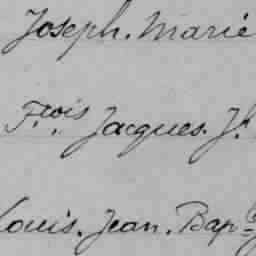 Joseph. Marie
F.rois Jacques. J.
Louis. Jean. Bap